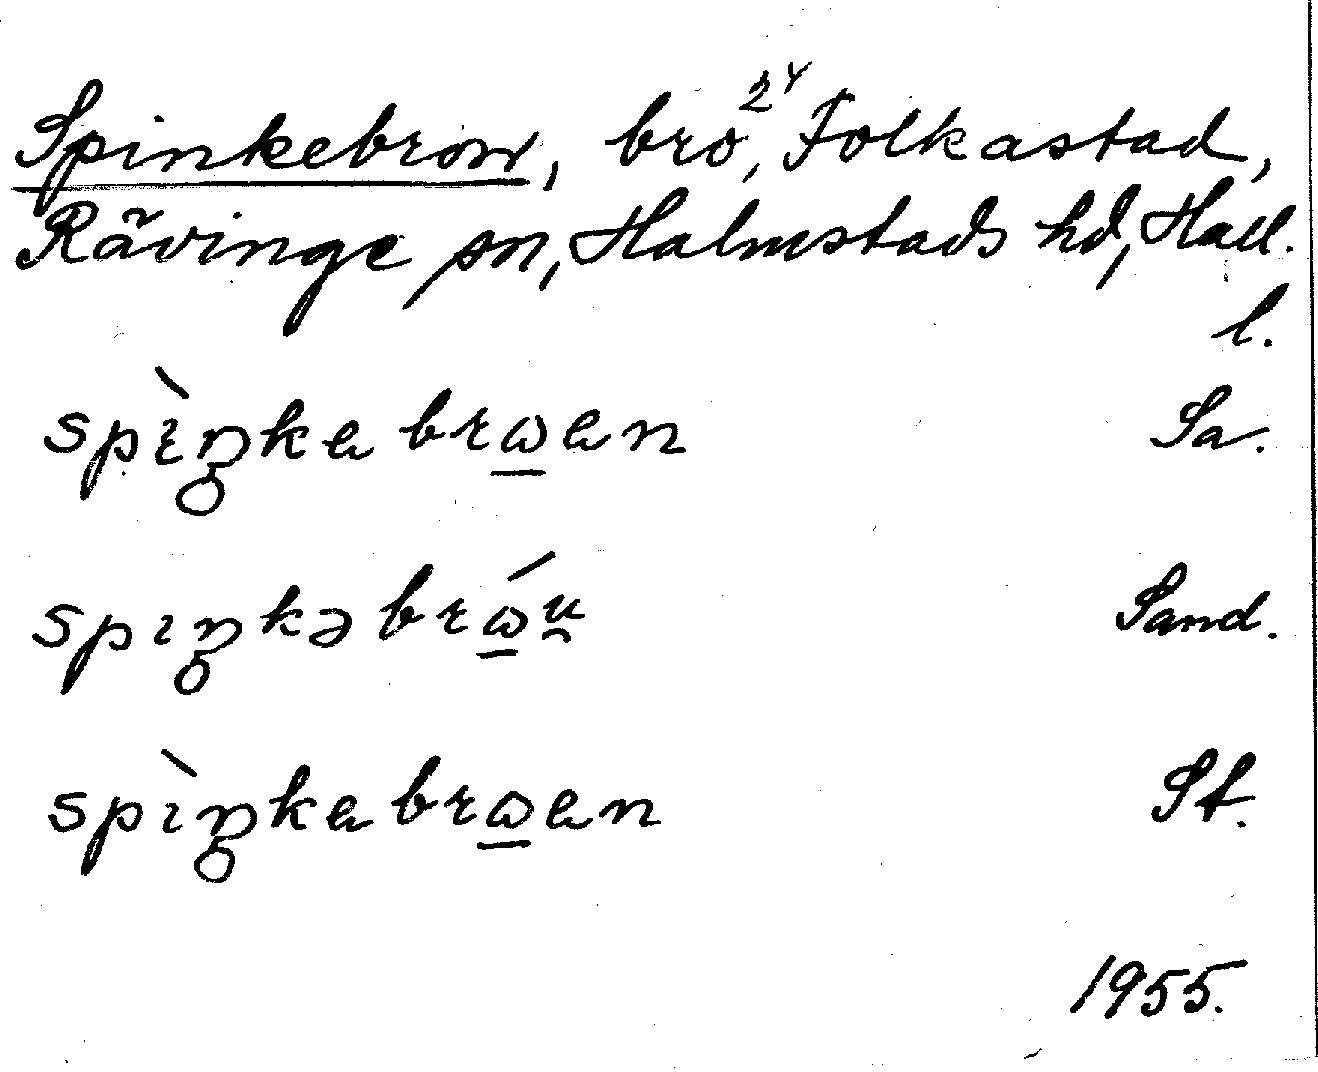 Spinkebron, bro, 24 Folkastad,
Rävinge sn, Halmstads hd, Hall.
l.
spìŋka brωan Sa.
spıŋkə brώu̯ Sand.
spìŋka brωan St.
1955.